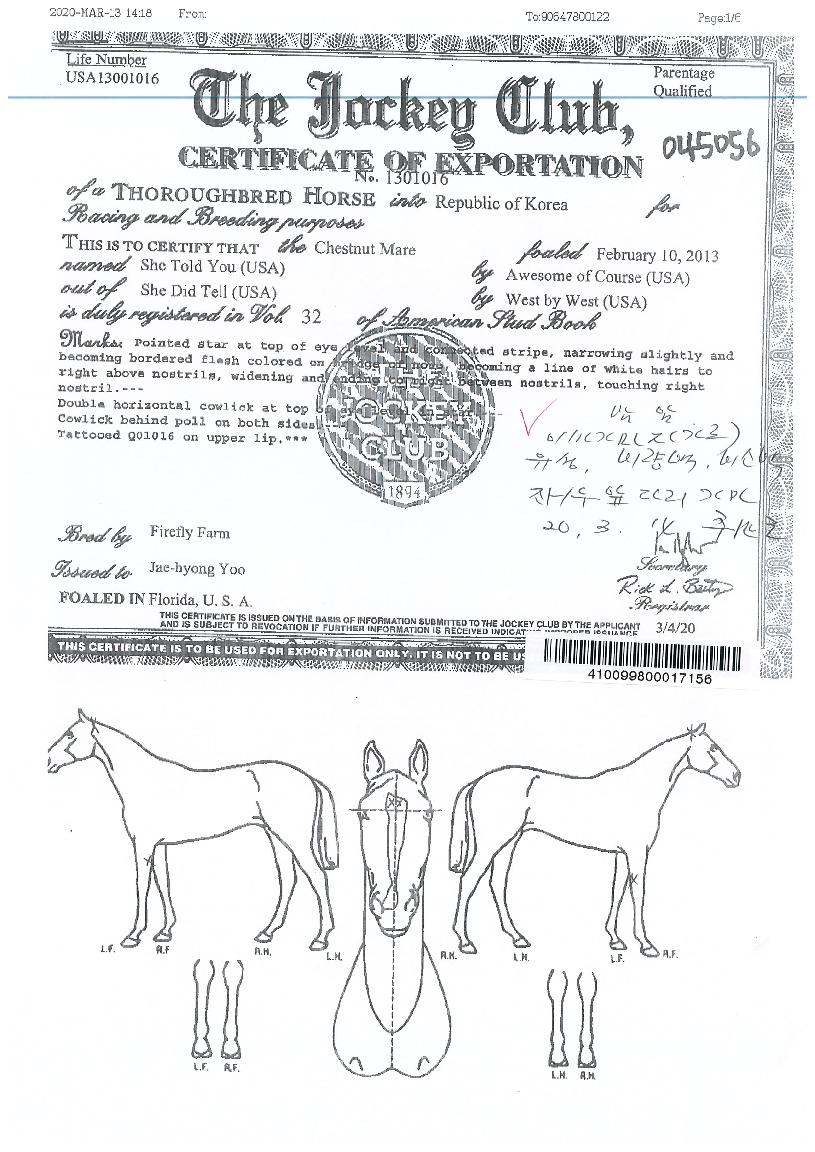 2020-MAR-13 14:18 From: To:90647800122 Page:1/6
Life Number
USA13001016
Parentage
Qualified
The Jockey Club,
045056
CERTIFICATE OF EXPORTATION
No. 1301016
of a THOROUGHBRED HORSE into Republic of Korea for
Racing and Breeding purposes
THIS IS TO CERTIFY THAT the Chestnut Mare foaled February 10, 2013
named She Told You (USA) by Awesome of Course (USA)
out of She Did Tell (USA) by West by West (USA)
is duly registered in Vol. 32 of American Stud Book
Marks: Pointed star at top of eye level and connected stripe, narrowing slightly and
becoming bordered flesh colored on bridge of nose, becoming a line of white hairs to
right above nostrils, widening and ending to right between nostrils, touching right
nostril.---
Double horizontal cowlick at top of eye level in star.
Cowlick behind poll on both sides
Tattooed Q01016 on upper lip.***
THE
JOCKEY
CLUB
1894
20, 3.
Bred by Firefly Farm
Issued to Jae-hyong Yoo
Secretary
Registrar
FOALED IN Florida, U. S. A.
THIS CERTIFICATE IS ISSUED ON THE BASIS OF INFORMATION SUBMITTED TO THE JOCKEY CLUB BY THE APPLICANT
AND IS SUBJECT TO REVOCATION IF FURTHER INFORMATION IS RECEIVED
3/4/20
THIS CERTIFICATE IS TO BE USED FOR EXPORTATION ONLY. IT IS NOT TO BE
410099800017156
L.F. R.F. R.H. L.H. R.H. L.H. L.F. R.F.
L.F. R.F. L.H. R.H.